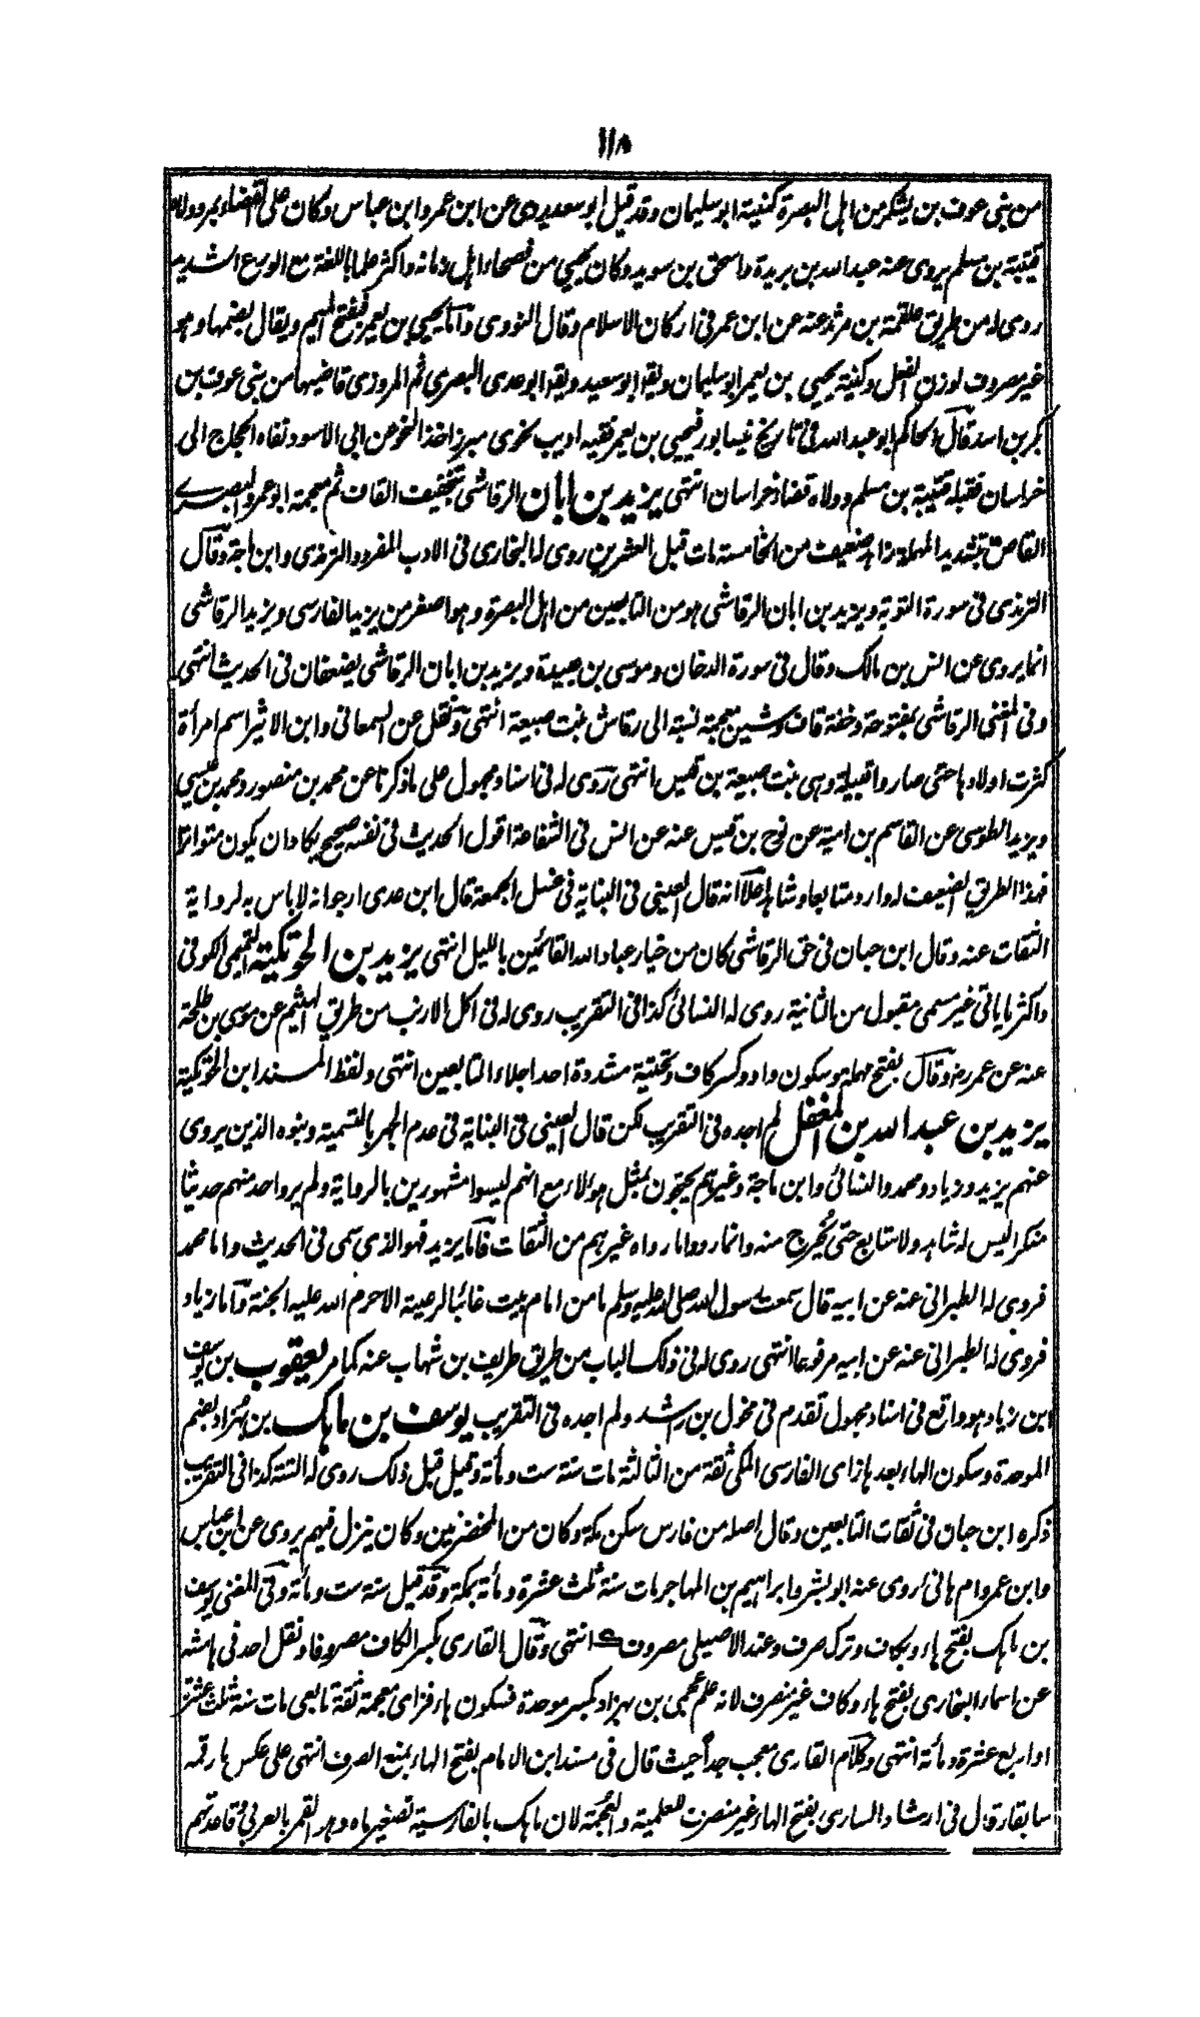 ١١٨
من بنى عوف بن يشكر من اهل البصرة كنيته ابو سليمان وقد قيل ابو سعيد يروى عن ابن عمر وابن عباس وكان على القضاء بمرو ولاه
قتيبة بن مسلم يروى عنه عبد الله بن بريدة واسحق بن سويد وكان يحيى من فصحاء اهل زمانه واكثر علما باللغة مع الورع الشديد
روى له من طريق علقمة بن مرثد عنه عن ابن عمر فى اركان الاسلام وقال النووى واما يحيى بن يعمر فبفتح الميم ويقال بضمها وهو
غير مصروف لوزن الفعل وكنية يحيى بن يعمر ابو سليمان ويقو ابو سعيد ويقو ابو عدى البصرى ثم المروزى قاضيها من بنى عوف بن
بكر بن اسد قال الحاكم ابو عبد الله فى تاريخ نيسابور فيحيى بن يعمر فقيه اديب نحوى مبرز اخذ النحو عن ابى الاسود نفاه الحجاج الى
خراسان فقبله قتيبة بن مسلم وولاه قضاء خراسان انتهى يزيد بن ابان الرقاشى بتخفيف القاف ثم معجمة ابو عمرو البصرى
القاص بتشديد المهملة زاهد ضعيف من الخامسة مات قبل العشرين روى له البخارى فى الادب المفرد والترمذى وابن ماجة وقال
الترمذى فى سورة التوبة ويزيد بن ابان الرقاشى هو من التابعين من اهل البصرة وهو اصغر من يزيد الفارسى ويزيد الرقاشى
انما يروى عن انس بن مالك وقال فى سورة الدخان وموسى بن عبيدة ويزيد بن ابان الرقاشى يضعفان فى الحديث انتهى
وفى المغنى الرقاشى بمفتوحة وخفة قاف وشين معجمة نسبة الى رقاش بنت ضبيعة انتهى ونقل عن السمعانى وابن الاثير اسم امرأة
كثرت اولادها حتى صاروا قبيلة وهى بنت ضبيعة بن قيس انتهى روى له فى اسناد مجهول على ما ذكرنا عن محمد بن منصور ومحمد بن عيسى
ويزيد الطوسى عن القاسم بن امية عن نوح بن قيس عنه عن انس فى الشفاعة اقول الحديث فى نفسه صحيح يكاد ان يكون متواترا
فهذا الطريق الضعيف له وارد متابعا وشاهدا علا انه قال العينى فى البناية فى غسل الجمعة قال ابن عدى ارجو انه لا باس به لرواية
الثقات عنه وقال ابن حبان فى حق الرقاشى كان من خيار عباد الله القائمين بالليل انتهى يزيد بن الحوتكية التميمى الكوفى
واكثر ما ياتى غير مسمى مقبول من الثانية روى له النسائى كذا فى التقريب روى له فى اكل الارنب من طريق الهيثم عن موسى بن طلحة
عنه عن عمر رض وقال بفتح مهملة وسكون واو وكسر كاف وتحتية مشددة احد اجلاء التابعين انتهى ولفظ المسند ابن الحوتكية
يزيد بن عبد الله بن المغفل لم اجده فى التقريب لكن قال العينى فى البناية فى عدم الجهر بالتسمية وبنوه الذين يروى
عنهم يزيد وزياد ومحمد والنسائى وابن ماجة وغيرهم يحتجون بمثل هؤلاء مع انهم ليسوا مشهورين بالرواية ولم يرو احد منهم حديثا
منكرا ليس له شاهد ولا متابع حتى يجرح منه وانما رووا ما رواه غيرهم من الثقات فاما يزيد فهو الذى سمى فى الحديث واما محمد
فروى له الطبرانى عنه عن ابيه قال سمعت رسول الله صلى الله عليه وسلم ما من امام يبيت غائبا لرعيته الا حرم الله عليه الجنة واما زياد
فروى له الطبرانى عنه عن ابيه مرفوعا انتهى روى له فى ذلك الباب من طريق طريف بن شهاب عنه كما مر يعقوب بن يوسف
ابن زياد هو واقع فى اسناد مجهول تقدم فى مخول بن راشد ولم اجده فى التقريب يوسف بن ماهك بن بهزاد بضم
الموحدة وسكون الهاء بعدها زاى الفارسى المكى ثقة من الثالثة مات سنة ست ومأة وقيل قبل ذلك روى له الستة كذا فى التقريب
ذكره ابن حبان فى ثقات التابعين وقال اصله من فارس سكن مكة وكان من المخضرمين وكان ينزل فيهم يروى عن ابن عباس
وابن عمر وام هانئ روى عنه ابو بشر وابراهيم بن المهاجر مات سنة ثلث عشرة ومأة بمكة وقد قيل سنة ست ومأة وفى المغنى يوسف
بن ماهك بفتح هاء وبكاف وترك صرف وعند الاصيلى مصروف انتهى وقال القارى بكسر الكاف مصروفا ونقل احد فى هامشه
عن اسماء البخارى بفتح هاء وكاف غير منصرف لانه علم عجمى بن بهزاد بكسر موحدة فسكون هاء فزاى معجمة ثقة تابعى مات سنة ثلث عشرة
او اربع عشرة ومأة انتهى وكلام القارى معجب جدا حيث قال فى مسند ابن الامام بفتح الهاء بمنع الصرف انتهى على عكس ما رقمه
سابقا وقال فى ارشاد السارى بفتح الهاء غير منصرف للعلمية والعجمة لان ماهك بالفارسية تصغير ماه وهو القمر بالعربى وقاعدتهم